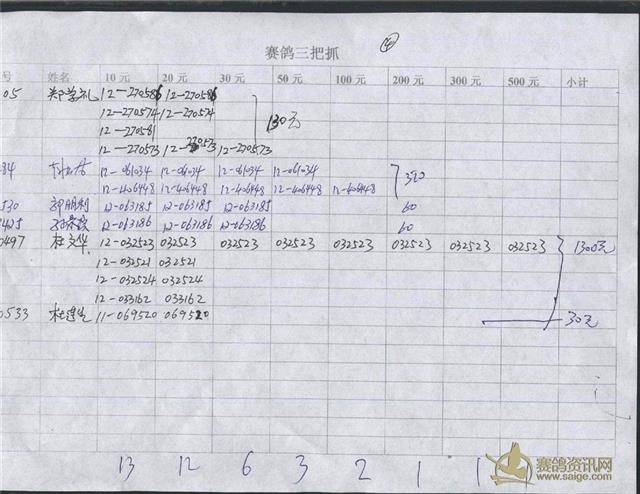 赛鸽三把抓 ④
号 姓名 10 元 20 元 30 元 50 元 100 元 200 元 300 元 500 元 小计
05 郑学礼 12-270586 12-270586
12-270574 12-270574
130元
12-270581
12-270573 12-270573 12-270573
34 12-061034 12-061034 12-061034 12-061034
12-406448 12-406448 12-406448 12-406448 12-406448
530 郭朋利 12-063185 12-063185 12-063185 60
425 12-063186 12-063186 12-063186 60
0497 杜文华 12-032523 032523 032523 032523 032523 032523 032523 032523 1300元
12-032521 032521
12-032524 032524
12-033162 033162
0533 11-069520 069520 30元
13 12 6 3 2 1 1
赛鸽资讯网
www.saige.com